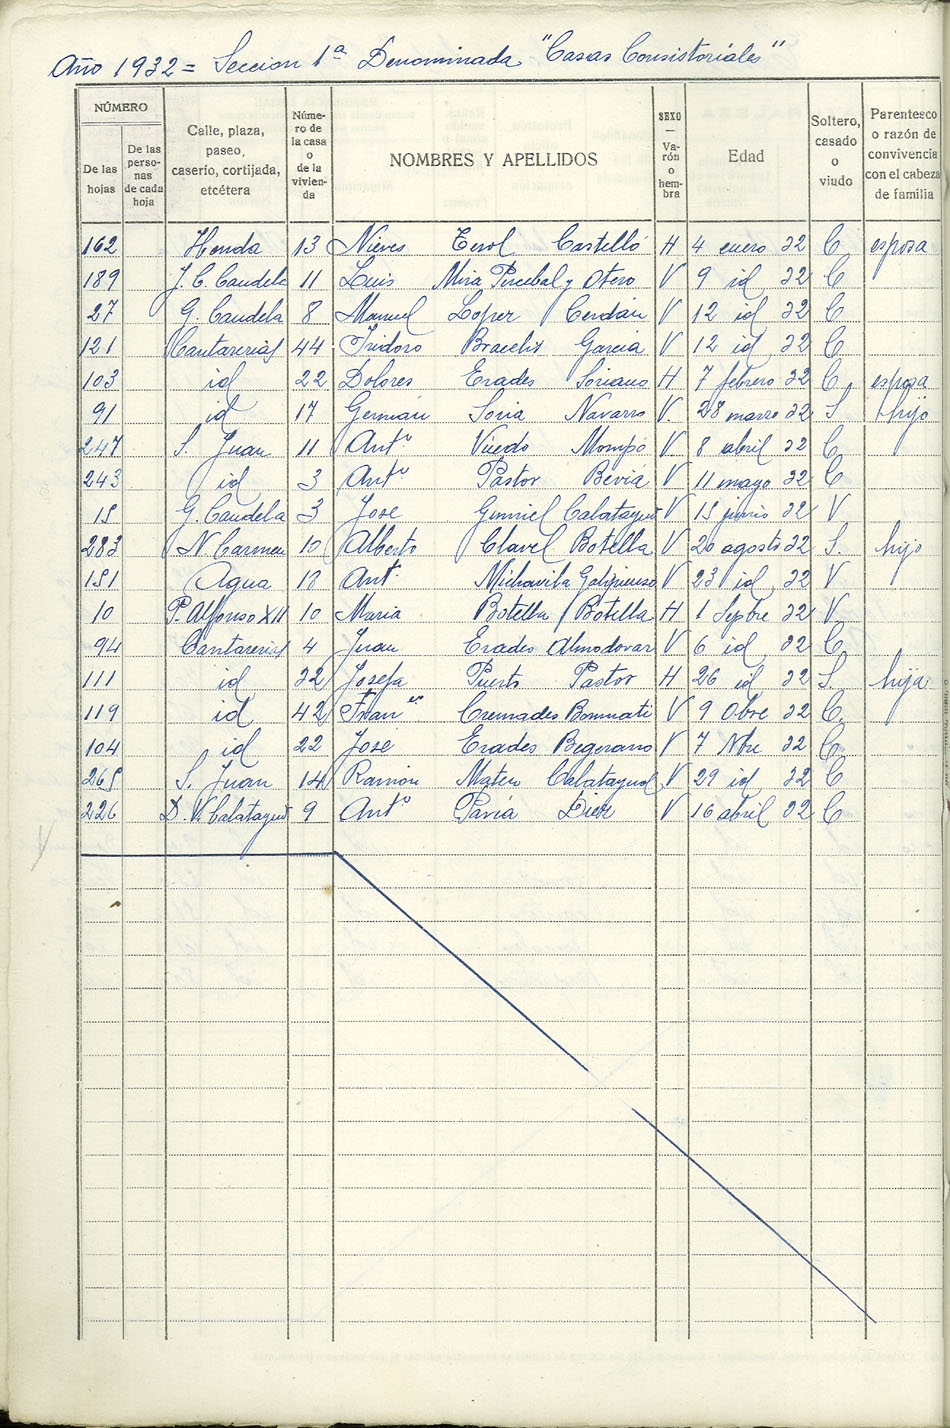 Año 1932 = Seccion 1ª Denominada "Casas Consistoriales"
NÚMERO
De las hojas
De las perso-nas de cada hoja
Calle, plaza, paseo, caserío, cortijada, etcétera
Núme-ro de la casa o de la vivien-da
NOMBRES Y APELLIDOS
SEXO — Va-rón o hem-bra
Edad
Soltero, casado o viudo
Parentesco o razón de convivencia con el cabeza de familia
162 Honda 13 Nieves Terol Castelló H 4 enero 32 C esposa
189 J. C. Candela 11 Luis Mira Percebal y Otero V 9 id 32 C
27 G. Candela 8 Manuel Lopez Cerdán V 12 id 32 C
121 Cantarerias 44 Isidoro Garcia V 12 id 32 C
103 id 22 Dolores Erades Soriano H 7 febrero 32 C esposa
91 id 17 Germán Soria Navarro V. 28 marzo 32 S hijo
247 S. Juan 11 Antº Vicedo Mompó V 8 abril 32 C
243 id 3 Antº Pastor Beviá V 11 mayo 32 C
15 G. Candela 3 Jose Gumiel Calatayud V 15 junio 32 V
283 N. Carmen 10 Alberto Clavel Botella V 20 agosto 32 S. hijo
151 Agua Ant. Michavila V 23 id 32 V
10 P. Alfonso XII 10 Maria Botella Botella H 1 Sepbre 32 V.
94 Cantarerias 4 Juan Erades Almodovar V 6 id 32 C
111 id 32 Josefa Puerto Pastor H 26 id 32 S. hija
119 id 42 Franco Cremades Bonmati V 9 Obre 32 C.
104 id 22 José Erades Bejerano V 7 Nbre 32 C
265 S. Juan 14 Ramón Mateu Calatayud V 29 id 32 C
226 D. V. Calatayud 9 Antº Pavía Diez V 16 abril 32 C